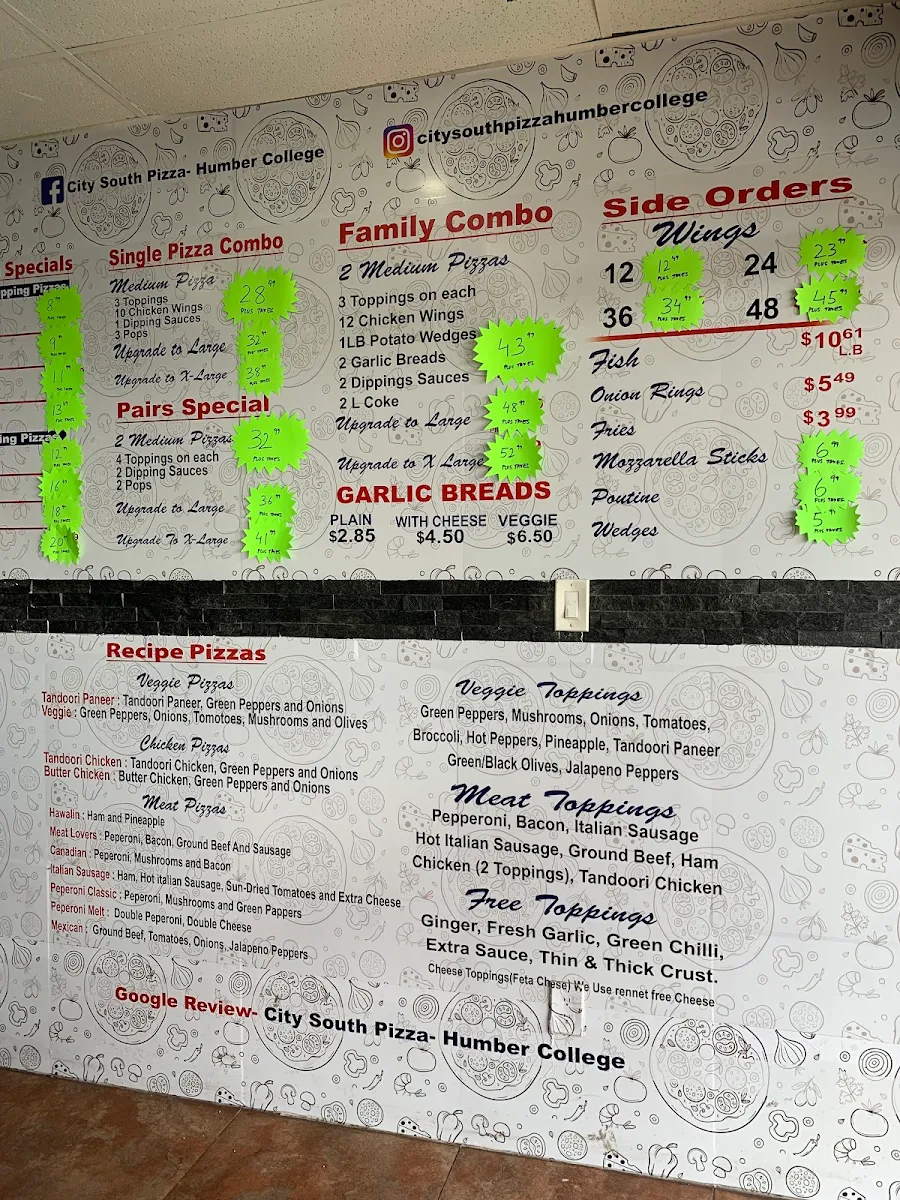 City South Pizza- Humber College
citysouthpizzahumbercollege
Specials
pping Pizza
8.99 PLUS TAXES
9.99
11.99
13.99
ing Pizza
12.99
16.99
18.99
20.99
Single Pizza Combo
Medium Pizza 28.99 PLUS TAXES
3 Toppings
10 Chicken Wings
1 Dipping Sauces
3 Pops
Upgrade to Large 32.99 PLUS TAXES
Upgrade to X-Large 38.99 PLUS TAXES
Pairs Special
2 Medium Pizzas 32.99 PLUS TAXES
4 Toppings on each
2 Dipping Sauces
2 Pops
Upgrade to Large 36.99 PLUS TAXES
Upgrade To X-Large 41.99 PLUS TAXES
Family Combo
2 Medium Pizzas
3 Toppings on each
12 Chicken Wings
1LB Potato Wedges 43.99 PLUS TAXES
2 Garlic Breads
2 Dippings Sauces
2 L Coke
Upgrade to Large 48.99 PLUS TAXES
Upgrade to X Large 52.99 PLUS TAXES
GARLIC BREADS
PLAIN WITH CHEESE VEGGIE
$2.85 $4.50 $6.50
Side Orders
Wings
12 12.49 PLUS TAXES 24 23.99 PLUS TAXES
36 34.99 PLUS TAXES 48 45.99 PLUS TAXES
Fish $10.61 L.B
Onion Rings $5.49
Fries $3.99
Mozzarella Sticks 6.99 PLUS TAXES
Poutine 6.99 PLUS TAXES
Wedges 5.99 PLUS TAXES
Recipe Pizzas
Veggie Pizzas
Tandoori Paneer : Tandoori Paneer, Green Peppers and Onions
Veggie : Green Peppers, Onions, Tomotoes, Mushrooms and Olives
Chicken Pizzas
Tandoori Chicken : Tandoori Chicken, Green Peppers and Onions
Butter Chicken : Butter Chicken, Green Peppers and Onions
Meat Pizzas
Hawalin : Ham and Pineapple
Meat Lovers : Peperoni, Bacon, Ground Beef And Sausage
Canadian : Peperoni, Mushrooms and Bacon
Italian Sausage : Ham, Hot italian Sausage, Sun-Dried Tomatoes and Extra Cheese
Peperoni Classic : Peperoni, Mushrooms and Green Pappers
Peperoni Melt : Double Peperoni, Double Cheese
Mexican : Ground Beef, Tomatoes, Onions, Jalapeno Peppers
Veggie Toppings
Green Peppers, Mushrooms, Onions, Tomatoes,
Broccoli, Hot Peppers, Pineapple, Tandoori Paneer
Green/Black Olives, Jalapeno Peppers
Meat Toppings
Pepperoni, Bacon, Italian Sausage
Hot Italian Sausage, Ground Beef, Ham
Chicken (2 Toppings), Tandoori Chicken
Free Toppings
Ginger, Fresh Garlic, Green Chilli,
Extra Sauce, Thin & Thick Crust.
Cheese Toppings(Feta Chese) We Use rennet free Cheese
Google Review- City South Pizza- Humber College